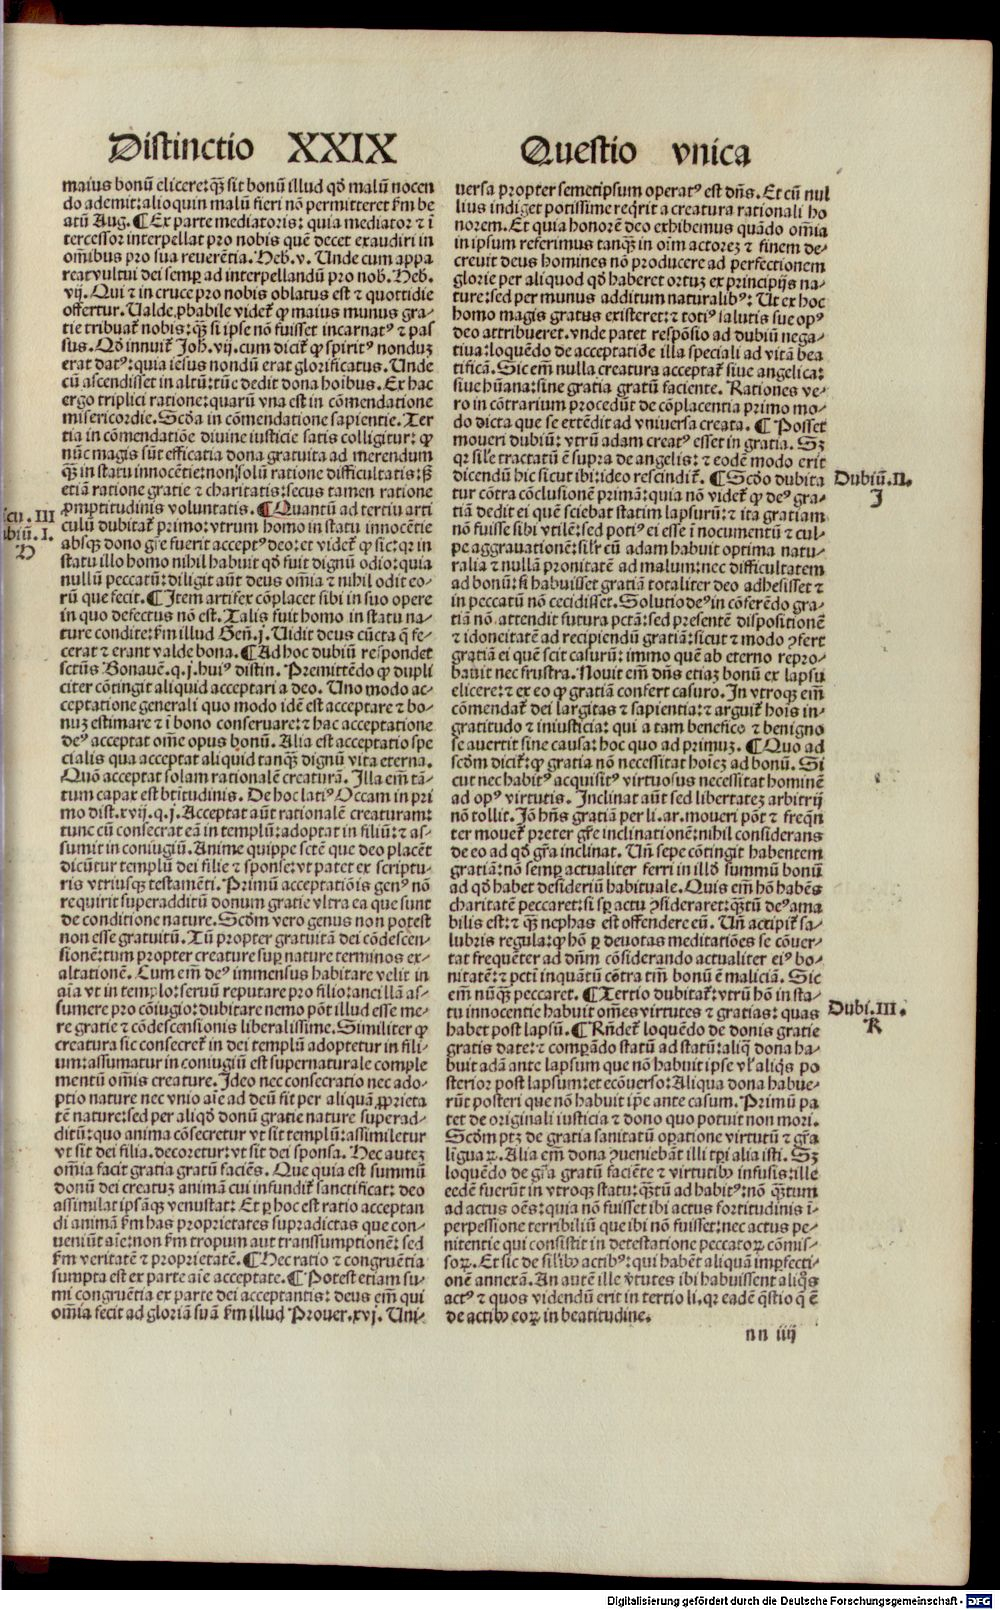 Distinctio XXIX Questio vnica
maius bonū elicere: qꝫ sit bonū illud qď malū nocen
do ademit: alioquin malū fieri nō permitteret ẜm be
atū Aug. ¶ Ex parte mediatoris: quia mediator ⁊ ī
tercessor interpellat pro nobis quē decet exaudiri in
om̄ibus pro sua reuerētia. Heb. v. Unde cum appa
reat vultui dei semꝑ ad interpellandū pro nob. Heb.
vij. Qui ⁊ in cruce pro nobis oblatus est ⁊ quottidie
offertur. Ualde ꝓbabile videt̉ ꝙ maius munus gra⸗
tie tribuat̉ nobis: qꝫ si ipse nō fuisset incarnatꝰ ⁊ pas
sus. Qď innuit̉ Joh. vij. cum dicit̉ ꝙ spiritꝰ nonduꝫ
erat datꝰ: quia iesus nondū erat glorificatus. Unde
cū ascendisset in altū: tūc dedit dona hoibus. Ex hac
ergo triplici ratione: quarū vna est in cōmendatione
misericordie. Scďa in cōmendatione sapientie. Ter
tia in cōmendatiōe diuine iusticie satis colligitur: ꝙ
nūc magis sūt efficatia dona gratuita ad merendum
qꝫ in statu innocētie: non solū ratione difficultatis: sꝫ
etiā ratione gratie ⁊ charitatis: secus tamen ratione
ꝓmptitudinis voluntatis. ¶ Quantū ad tertiu arti
culū dubitat̉ primo: vtrum homo in statu innocētie
absqꝫ dono gr̄e fuerit acceptꝰ deo: et videt̉ ꝙ sic: qꝛ in
statu illo homo nihil habuit qď fuit dignū odio: quia
nullū peccatū: diligit aūt deus om̄ia ⁊ nihil odit eo⸗
rū que fecit. ¶ Item artifex cōplacet sibi in suo opere
in quo defectus nō est. Talis fuit homo in statu na⸗
ture condite: ẜm illud Gen̄. j. Uidit deus cūcta q̄ fe⸗
cerat ⁊ erant valde bona. ¶ Ad hoc dubiū respondet
sctūs Bonauē. q. j. huiꝰ distin. Premittēdo ꝙ dupli
citer cōtingit aliquid acceptari a deo. Uno modo ac⸗
ceptatione generali quo modo idē est acceptare ⁊ bo⸗
nuꝫ estimare ⁊ ī bono conseruare: ⁊ hac acceptatione
deꝰ acceptat om̄e opus bonū. Alia est acceptatio spe
cialis qua acceptat aliquid tanqꝫ dignū vita eterna.
Quō acceptat solam rationalē creaturā. Illa em̄ tā⸗
tum capax est btītudinis. De hoc latiꝰ Occam in pri
mo dist. xvij. q. j. Acceptat aūt rationalē creaturam:
tunc cū consecrat eā in templū: adoptat in filiū: ⁊ as⸗
sumit in coniugiū. Anime quippe sctē que deo placēt
dicūtur templū dei filie ⁊ sponse: vt patet ex scriptu⸗
ris vtriusqꝫ testamēti. Primū acceptatiōis genꝰ nō
requirit superadditū donum gratie vltra ea que sunt
de conditione nature. Scďm vero genus non potest
non esse gratuitū. Tū propter gratuitā dei cōdescen⸗
sionē: tum propter creature suꝑ nature terminos ex⸗
altationē. Cum em̄ deꝰ immensus habitare velit in
aīa vt in templo: seruū reputare pro filio: ancillā as⸗
sumere pro cōiugio: dubitare nemo pōt illud esse me⸗
re gratie ⁊ cōdescensionis liberalissime. Similiter ꝙ
creatura sic consecret̉ in dei templū adoptetur in fili⸗
um: assumatur in coniugiū est supernaturale comple
mentū om̄is creature. Ideo nec consecratio nec ado⸗
ptio nature nec vnio aīe ad deū fit per aliquā ꝓprieta
tē nature: sed per aliqď donū gratie nature superad⸗
ditū: quo anima cōsecretur vt sit templū: assimiletur
vt sit dei filia. decoretur: vt sit dei sponsa. Hec auteꝫ
om̄ia facit gratia gratū faciēs. Que quia est summū
donū dei creatuꝫ animā cui infundit̉ sanctificat: deo
assimilat ipsāqꝫ venustat: Et ꝑ hoc est ratio acceptan
di animā ẜm has proprietates supradictas que con⸗
ueniūt aīe: non ẜm tropum aut transsumptionē: sed
ẜm veritatē ⁊ proprietatē. ¶ Hec ratio ⁊ congruētia
sumpta est ex parte aīe acceptate. ¶ Potest etiam su⸗
mi congruētia ex parte dei acceptantis: deus em̄ qui
om̄ia fecit ad gloriā suā ẜm illud Prouer. xvj. Uni⸗
cu. III
biū. I.
D
uersa propter semetipsum operatꝰ est dn̄s. Et cū nul
lius indiget potissime reqͥrit a creatura rationali ho
norem. Et quia honorē deo exhibemus quādo om̄ia
in ipsum referimus tanqꝫ in oīm actoreꝫ ⁊ finem de⸗
creuit deus homines nō producere ad perfectionem
glorie per aliquod qď haberet ortuꝫ ex principijs na⸗
ture: sed per munus additum naturalibꝰ: Ut ex hoc
homo magis gratus existeret: ⁊ totiꝰ salutis sue opꝰ
deo attribueret. vnde patet respōsio ad dubiū nega⸗
tiua: loquēdo de acceptatiōe illa speciali ad vitā bea
tificā. Sic em̄ nulla creatura acceptat̉ siue angelica:
siue hūana: sine gratia gratū faciente. Rationes ve⸗
ro in cōtrarium procedūt de cōplacentia primo mo⸗
do dicta que se extēdit ad vniuersa creata. ¶ Posset
moueri dubiū: vtrū adam creatꝰ esset in gratia. Sꝫ
qꝛ sil̄e tractatū ē supra de angelis: ⁊ eodē modo erit
dicendū hic sicut ibi: ideo rescindit̉. ¶ Scďo dubita
tur cōtra cōclusionē primā: quia nō videt̉ ꝙ deꝰ gra⸗
tiā dedit ei quē sciebat statim lapsurū: ⁊ ita gratiam
nō fuisse sibi vtilē: sed potiꝰ ei esse ī nocumentū ⁊ cul⸗
pe aggrauationē: sil̄r cū adam habuit optima natu⸗
ralia ⁊ nullā pronitatē ad malum: nec difficultatem
ad bonū: si habuisset gratiā totaliter deo adhesisset ⁊
in peccatū nō cecidisset. Solutio deꝰ in cōferēdo gra⸗
tiā nō attendit futura pctā: sed presentē dispositionē
⁊ idoneitatē ad recipiendū gratiā: sicut ⁊ modo ꝯfert
gratiā ei quē scit casurū: immo quē ab eterno repro⸗
bauit nec frustra. Nouit em̄ dn̄s etiaꝫ bonū ex lapsu
elicere: ⁊ ex eo ꝙ gratiā confert casuro. In vtroqꝫ em̄
cōmendat̉ dei largitas ⁊ sapientia: ⁊ arguit̉ hoīs in⸗
gratitudo ⁊ iniusticia: qui a tam benefico ⁊ benigno
se auertit sine causa: hoc quo ad primuꝫ. ¶ Quo ad
scďm dicit̉: ꝙ gratia nō necessitat hoīeꝫ ad bonū. Si
cut nec habitꝰ acquisitꝰ virtuosus necessitat hominē
ad opꝰ virtutis. Inclinat aūt sed libertateꝫ arbitrij
nō tollit. Jō hn̄s gratiā per li. ar. moueri pōt ⁊ freqn̄
ter mouet̉ preter gr̄e inclinationē: nihil considerans
de eo ad qď gr̄a inclinat. Un̄ sepe cōtingit habentem
gratiā: nō semꝑ actualiter ferri in illď summū bonū
ad qď habet desideriū habituale. Quis em̄ hō habēs
charitatē peccaret: si sꝑ actu ꝯsideraret: qꝫtū deꝰ ama
bilis est: ⁊ qꝫ nephas est offendere eū. Un̄ accipit̉ sa⸗
lubris regula: ꝙ hō ꝑ deuotas meditatiōes se cōuer⸗
tat frequēter ad dn̄m cōsiderando actualiter eiꝰ bo⸗
nitatē: ⁊ pctī inquātū cōtra tm̄ bonū ē maliciā. Sic
em̄ nūqꝫ peccaret. ¶ Tertio dubitat̉: vtrū hō in sta⸗
tu innocentie habuit om̄es virtutes ⁊ gratias: quas
habet post lapsū. ¶ Rn̄det̉ loquēdo de donis gratie
gratis date: ⁊ comꝑādo statū ad statū: aliq̄ dona ha⸗
buit adā ante lapsum que nō habuit ipse vl̓ aliqͥs po
sterior post lapsum: et ecōuerso: Aliqua dona habue⸗
rūt posteri que nō habuit ip̄e ante casum. Primū pa
tet de originali iusticia ⁊ dono quo potuit non mori.
Scďm ptꝫ de gratia sanitatū oꝑatione virtutū ⁊ gr̄a
līguaꝝ. Alia em̄ dona ꝯueniebāt illi tꝑi alia isti. Sꝫ
loquēdo de gr̄a gratū faciēte ⁊ virtutibꝰ infusis: ille
eedē fuerūt in vtroqꝫ statu: qꝫtū ad habitꝰ: nō qꝫtum
ad actus oēs: quia nō fuisset ibi actus fortitudinis ī⸗
perpessione terribiliū que ibi nō fuisset: nec actus pe⸗
nitentie qui consistit in detestatione peccatoꝝ cōmis⸗
soꝝ. Et sic de silibꝰ actibꝰ: qui habēt aliquā imꝑfecti⸗
onē annexā. An autē ille v̓tutes ibi habuissent aliqͦs
actꝰ ⁊ quos videndū erit in tertio li. qꝛ eadē qͣstio q̄ ē
de actibꝰ eoꝝ in beatitudine.
Dubiū. II.
J
Dubi. III.
K
nn iiij
Digitalisierung gefördert durch die Deutsche Forschungsgemeinschaft - DFG